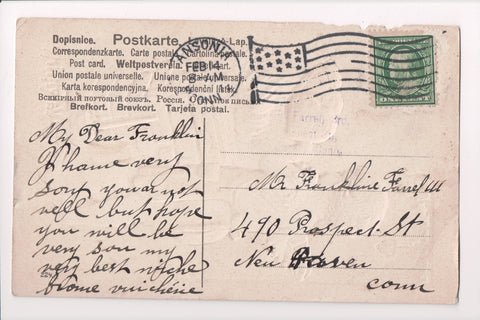 Dopisnice. Postkarte. Lev.-Lap.
Correspondenzkarte. Carte postale. Cartolina postale.
Post card. Weltpostverein. Briefkaart.
Union postale universelle. Unione postale universale.
Karta korespondencyjna. Korespondenční lístek.
Всемірный почтовый союзъ. Россія.
Brefkort. Brevkort. Tarjeta postal.
ANSONIA
FEB 14
8 AM
CONN
My Dear Franklin
I hame very
sory you ar not
well but hope
you will be
very son my
very best
Mr Frankline Farrel III
490 Prospect St
New Haven
Conn